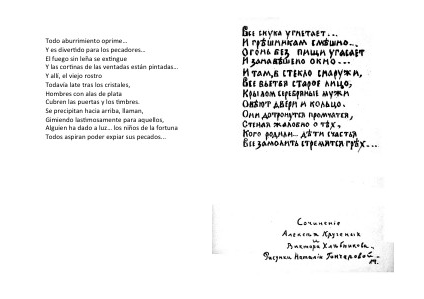 Todo aburrimiento oprime...
Y es divertido para los pecadores...
El fuego sin leña se extingue
Y las cortinas de las ventadas están pintadas...
Y allí, el viejo rostro
Todavía late tras los cristales,
Hombres con alas de plata
Cubren las puertas y los timbres.
Se precipitan hacia arriba, llaman,
Gimiendo lastimosamente para aquellos,
Alguien ha dado a luz... los niños de la fortuna
Todos aspiran poder expiar sus pecados...
Все скука угнетает...
И грѣшникам смѣшно...
Огонь без пищи угасает
И занавѣшено окно...
И там, в стекло снаружи,
Все бьется старое лицо,
Крылом серебряные мужи
Овѣют двѣри и кольцо.
Они дотронутся промчатся,
Стеная жалобно о тѣх,
Кого родили... дѣти счастья
Все замолить стремятся грѣх...
Сочинение
Алексѣя Крученых
и
Виктора Хлѣбникова.
Рисунки Наталіи Гончаровой.